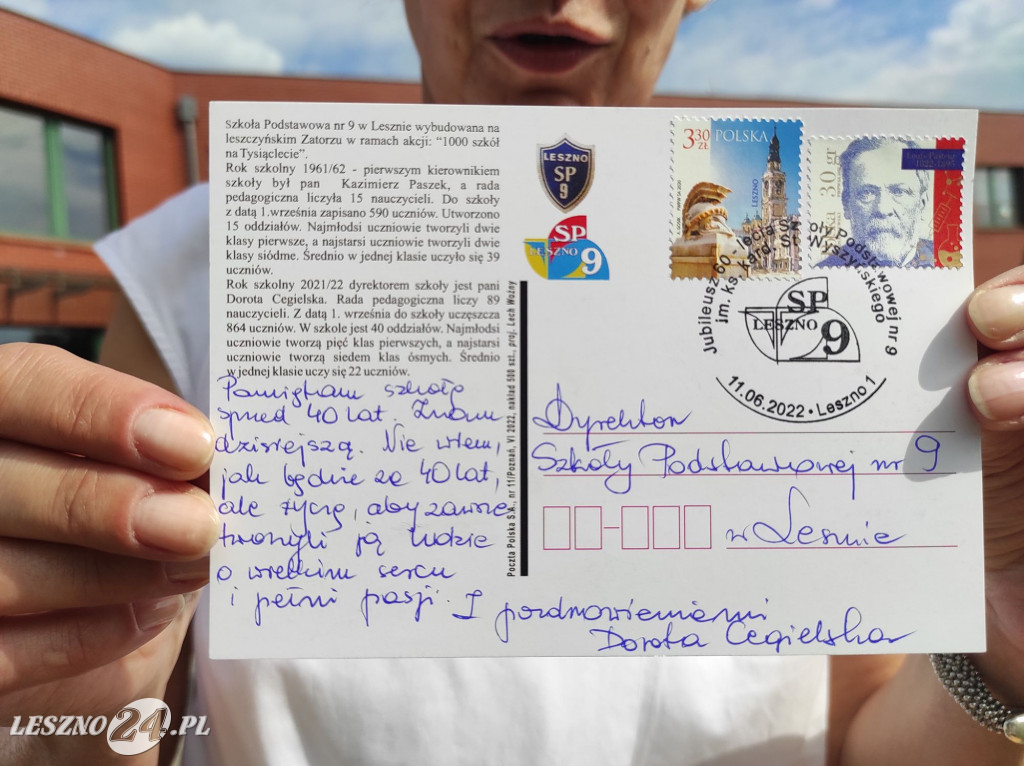 Szkoła Podstawowa nr 9 w Lesznie wybudowana na
leszczyńskim Zatorzu w ramach akcji: “1000 szkół
na Tysiąclecie”.
Rok szkolny 1961/62 - pierwszym kierownikiem
szkoły był pan Kazimierz Paszek, a rada
pedagogiczna liczyła 15 nauczycieli. Do szkoły
z datą 1.września zapisano 590 uczniów. Utworzono
15 oddziałów. Najmłodsi uczniowie tworzyli dwie
klasy pierwsze, a najstarsi uczniowie tworzyli dwie
klasy siódme. Średnio w jednej klasie uczyło się 39
uczniów.
Rok szkolny 2021/22 dyrektorem szkoły jest pani
Dorota Cegielska. Rada pedagogiczna liczy 89
nauczycieli. Z datą 1. września do szkoły uczęszcza
864 uczniów. W szkole jest 40 oddziałów. Najmłodsi
uczniowie tworzą pięć klas pierwszych, a najstarsi
uczniowie tworzą siedem klas ósmych. Średnio
w jednej klasie uczy się 22 uczniów.
Pamiętam szkołę
sprzed 40 lat. Znam
dzisiejszą. Nie wiem,
jak będzie za 40 lat,
ale życzę, aby zawsze
tworzyli ją ludzie
o wielkim sercu
i pełni pasji. Z pozdrowieniami
Dorota Cegielska
Poczta Polska S.A., nr 11/Poznań, VI 2022, nakład 500 szt., proj. Lech Woźny
LESZNO
SP
9
SP
LESZNO 9
3,30
ZŁ
POLSKA
LESZNO
30 gr
1822-1895
Jubileusz 60-lecia Szkoły Podstawowej nr 9
im. ks. kard. St. Wyszyńskiego
SP
LESZNO 9
11.06.2022 • Leszno 1
Dyrektor
Szkoły Podstawowej nr 9
w Lesznie
LESZNO24.PL